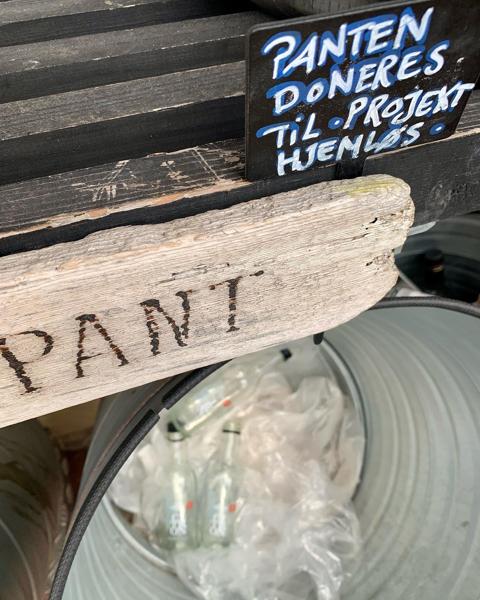 PANTEN
DONERES
TIL • PROJEKT
HJEMLØS •
PANT